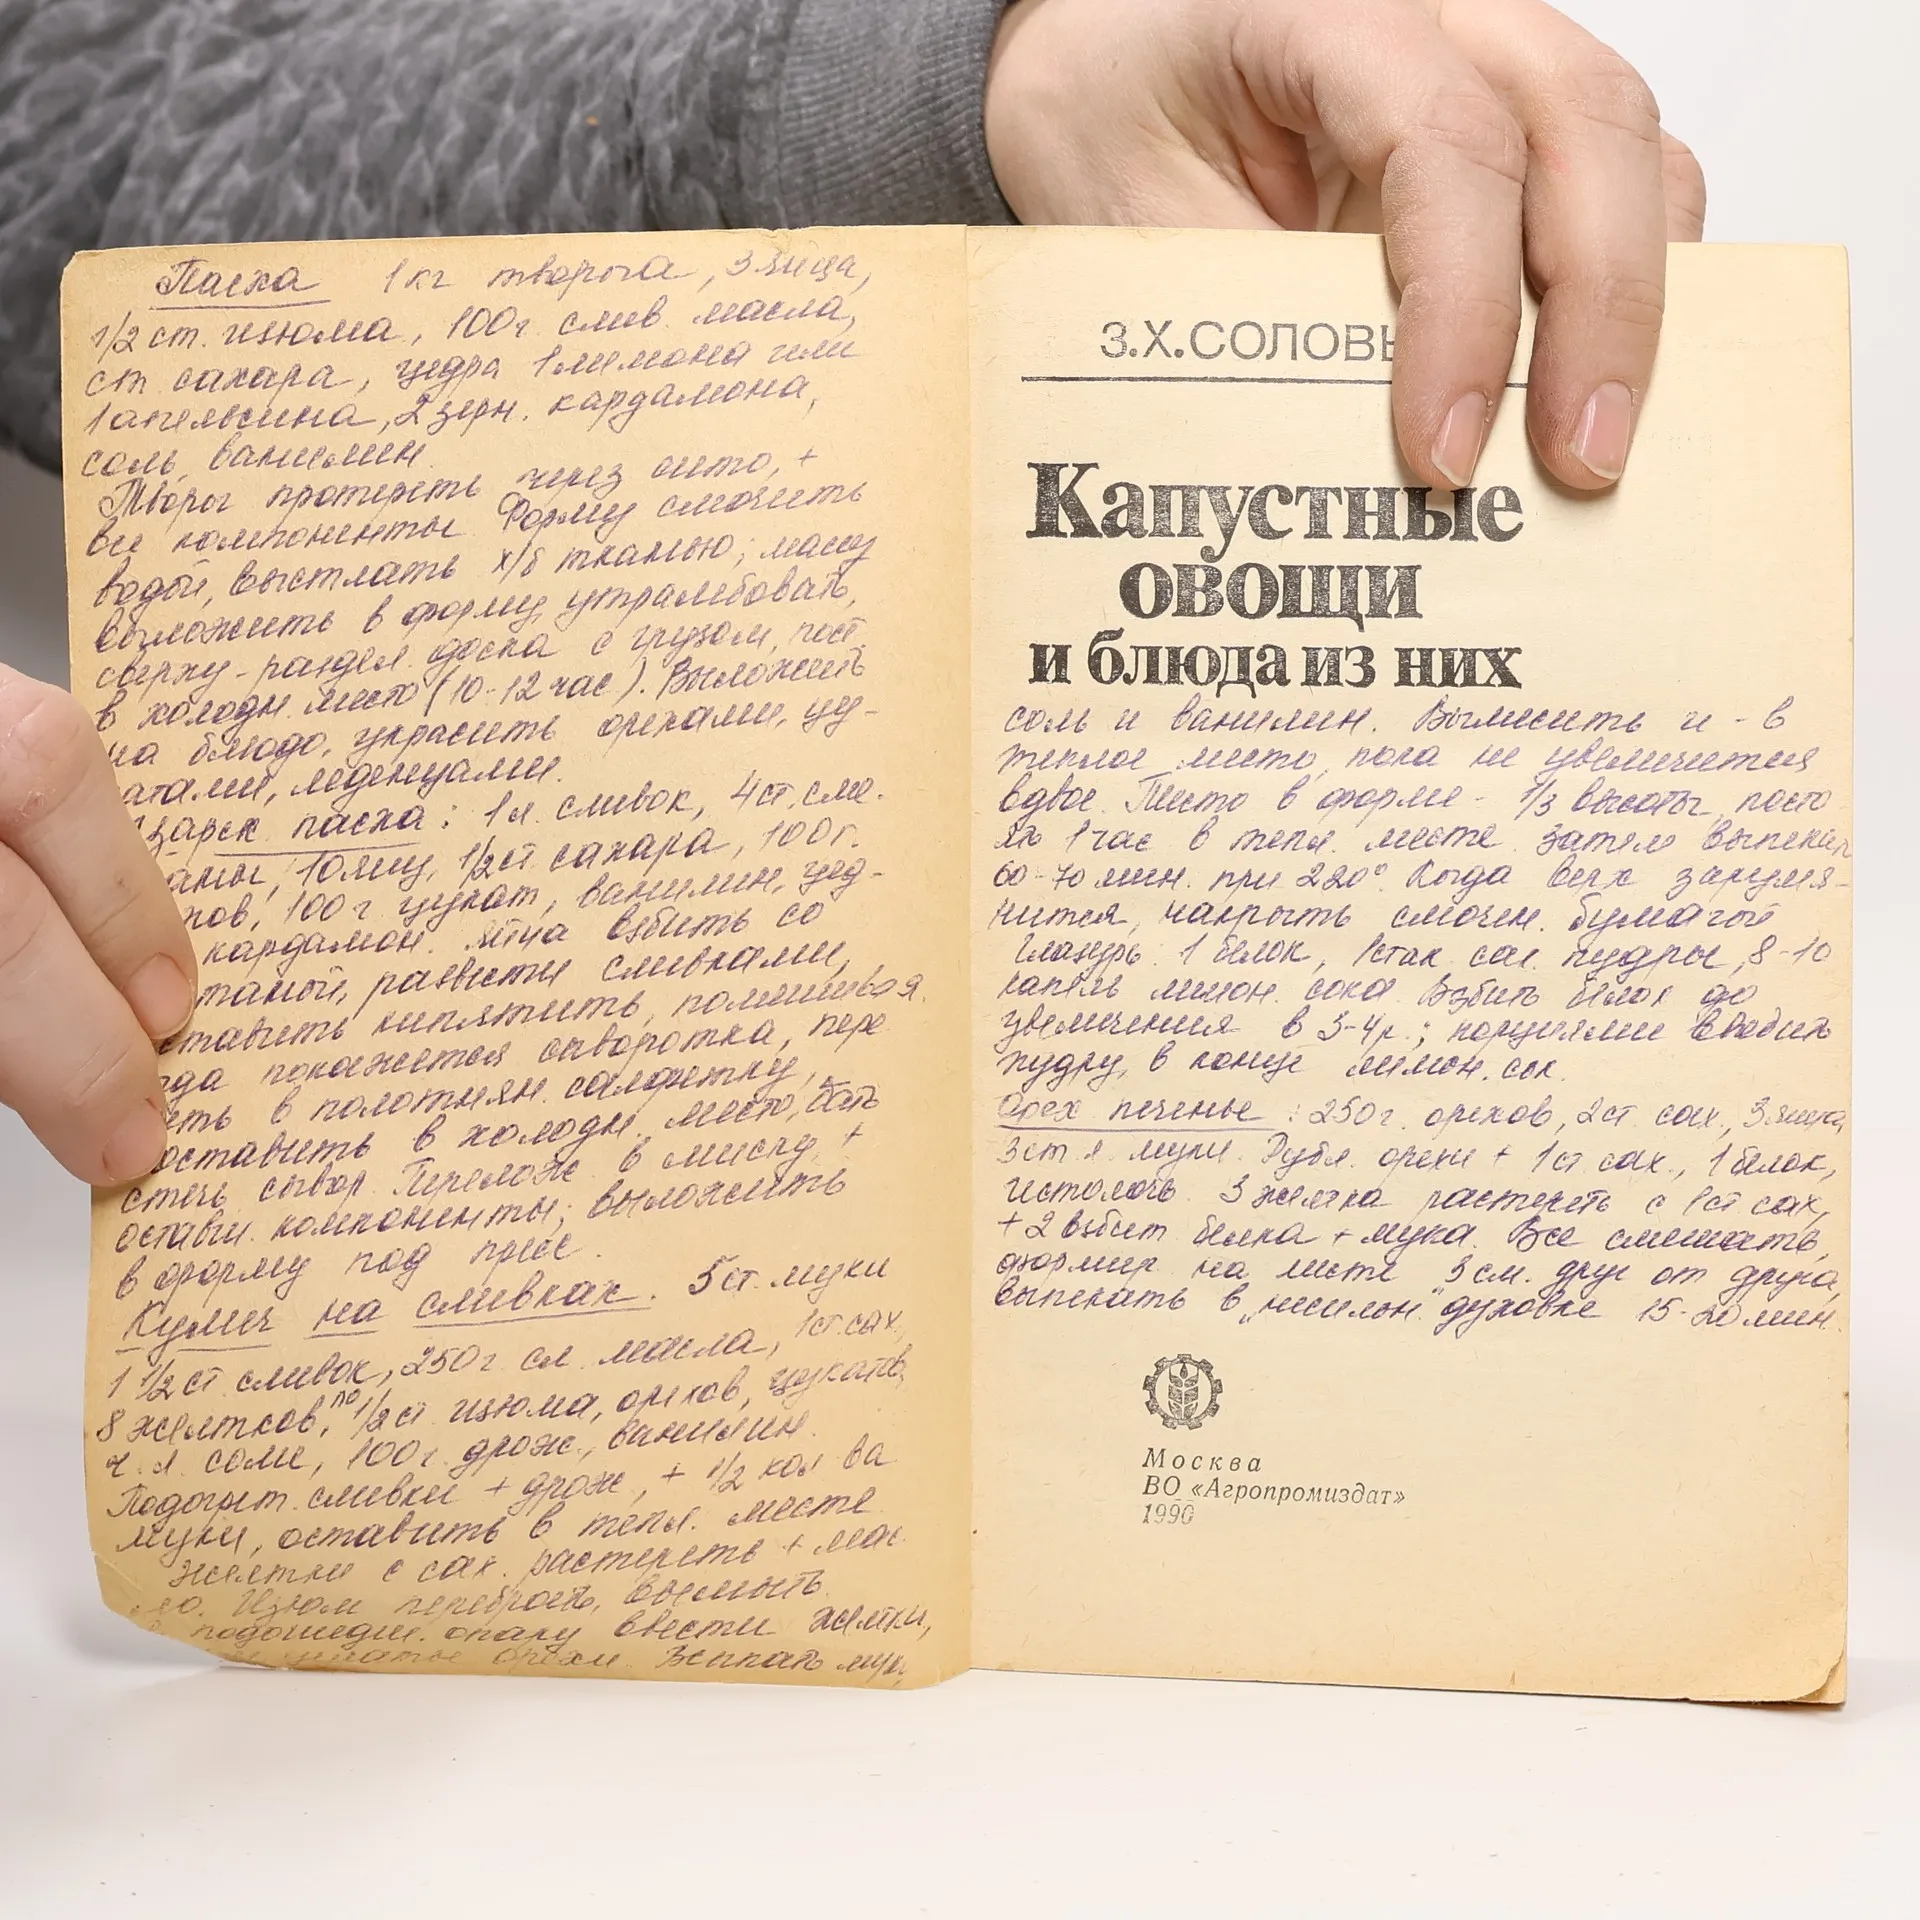 Пасха 1 кг творога, 3 яйца,
1/2 ст. изюма, 100 г. слив. масла,
ст. сахара, цедра 1 лимона или
1 апельсина, 2 зерн. кардамона,
соль, ванилин.
Творог протереть через сито, +
все компоненты. Форму смочить
водой, выстлать х/б тканью; массу
выложить в форму, утрамбовать,
сверху - раздел. доска с грузом, пост.
в холодн. место (10-12 час). Выложить
на блюдо, украсить орехами, цу-
атами, леденцами.
царск. пасха: 1 л. сливок, 4 ст. сме-
аны, 10 яиц, 1/2 ст. сахара, 100 г.
хов, 100 г. цукат, ванилин, цед-
кардамон. Яйца взбить со
таной, развести сливками,
ставить кипятить, помешивая.
гда покажется сыворотка, пере
ить в полотнян. салфетку,
оставить в холодн. место, дать
стечь сывор. Перелож. в миску, +
остальн. компоненты; выложить
в форму под пресс.
Кулич на сливках. 5 ст. муки
1 1/2 ст. сливок, 250 г. сл. масла, 1 ст. сах.,
8 желтков, по 1/2 ст. изюма, орехов, цукатов,
ч. л. соли, 100 г. дрож., ванилин.
Подогрет. сливки + дрож., + 1/2 кол-ва
муки, оставить в тепл. месте.
Желтки с сах. растереть + мас
ло. Изюм перебрать, вымыть.
подошедш. опару ввести желтки,
орехи. Всыпать муку,
З.Х.СОЛОВЬ
Капустные
овощи
и блюда из них
соль и ванилин. Вымесить и - в
теплое место, пока не увеличится
вдвое. Тесто в форме - 1/3 высоты, посто
ять 1 час в тепл. месте. Затем выпекат
60-70 мин. при 220°. Когда верх зарумя-
нится, накрыть смочен. бумагой
Глазурь: 1 белок, 1 стак. сах. пудры, 8-10
капель лимон. сока. Взбить белок до
увеличения в 3-4 р.; порциями вводить
пудру, в конце лимон. сок.
Орех. печенье: 250 г. орехов, 2 ст. сах., 3 яйца,
3 ст. л. муки. Рубл. орехи + 1 ст. сах., 1 белок,
истолочь. 3 желтка растереть с 1 ст. сах.,
+ 2 взбит. белка + мука. Все смешать,
формир. на листе 3 см. друг от друга,
выпекать в „несильн." духовке 15-20 мин.
Москва
ВО «Агропромиздат»
1990